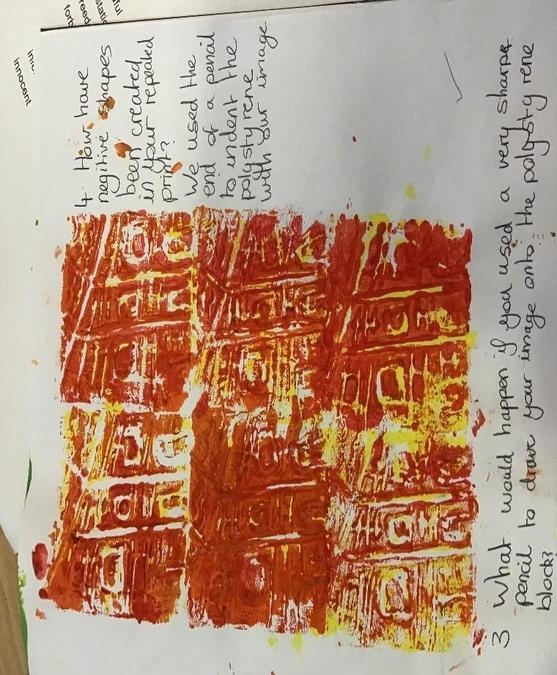 4 How have
negitive shapes
been created
in your repeated
print?
We used the
end of a pencil
to indent the
polystyrene
with our image
3 What would happen if you used a very sharpe
pencil to draw your image onto the polystyrene
block?
innocent